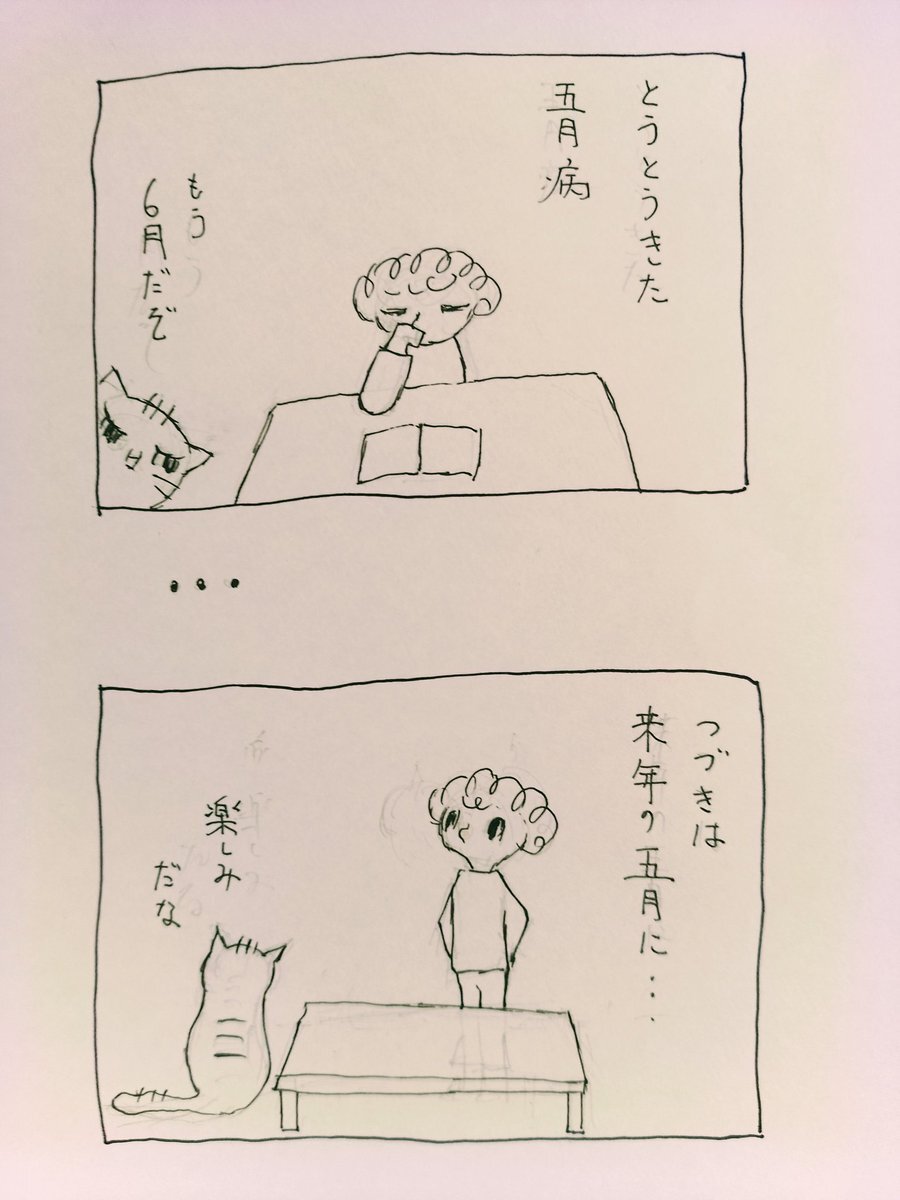 とうとうきた
五月病
もう
6月だぞ
・・・
つづきは
来年の五月に・・・
楽しみ
だな